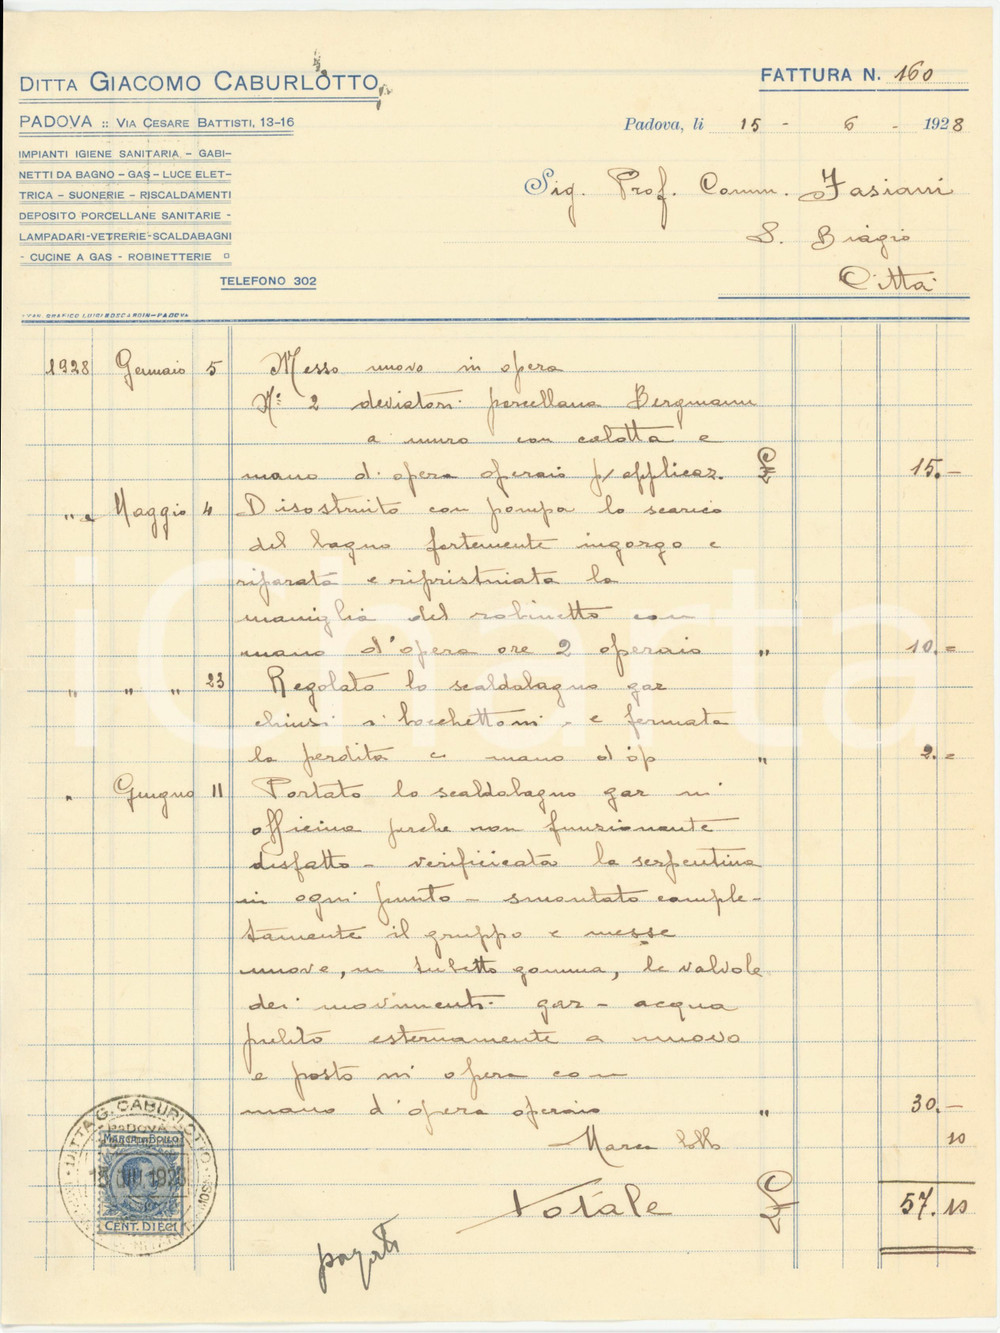 DITTA GIACOMO CABURLOTTO
PADOVA :: VIA CESARE BATTISTI, 13-16
IMPIANTI IGIENE SANITARIA - GABI-
NETTI DA BAGNO - GAS - LUCE ELET-
TRICA - SUONERIE - RISCALDAMENTI
DEPOSITO PORCELLANE SANITARIE -
LAMPADARI-VETRERIE-SCALDABAGNI
- CUCINE A GAS - ROBINETTERIE
TELEFONO 302
FATTURA N. 160
Padova, li 15 - 6 - 1928
Sig. Prof. Comm. Fasiani
S. Biagio
Città
GRAFICO LUIGI BOSCARDIN-PADOVA
1928 Gennaio 5 Messo nuovo in opera
N° 2 deviatori porcellana Bergmann
a muro con calotta e
mano d'opera operaio p/ applicaz. £ 15.-
" Maggio 4 Disostruito con pompa lo scarico
del bagno fortemente ingorgo e
riparata e ripristinata la
maniglia del robinetto con
mano d'opera ore 2 operaio " 10.=
" " " 23 Regolato lo scaldabagno gaz
chiusi i bocchettoni - e fermata
la perdita e mano d'op " 2.=
" Giugno 11 Portato lo scaldabagno gaz in
officina perche non funzionante
disfatto - verificicata la serpentina
in ogni punto - smontato comple-
tamente il gruppo e messe
nuove, in tubetto gomma, le valvole
dei movimenti gaz - acqua
pulito esternamente a nuovo
e posto in opera con
mano d'opera operaio " 30.-
Marca bollo 10
Totale £ 57.10
pagato
DITTA G. CABURLOTTO
PADOVA
MARCA DA BOLLO
15 GIU 1928
CENT. DIECI
iCharta